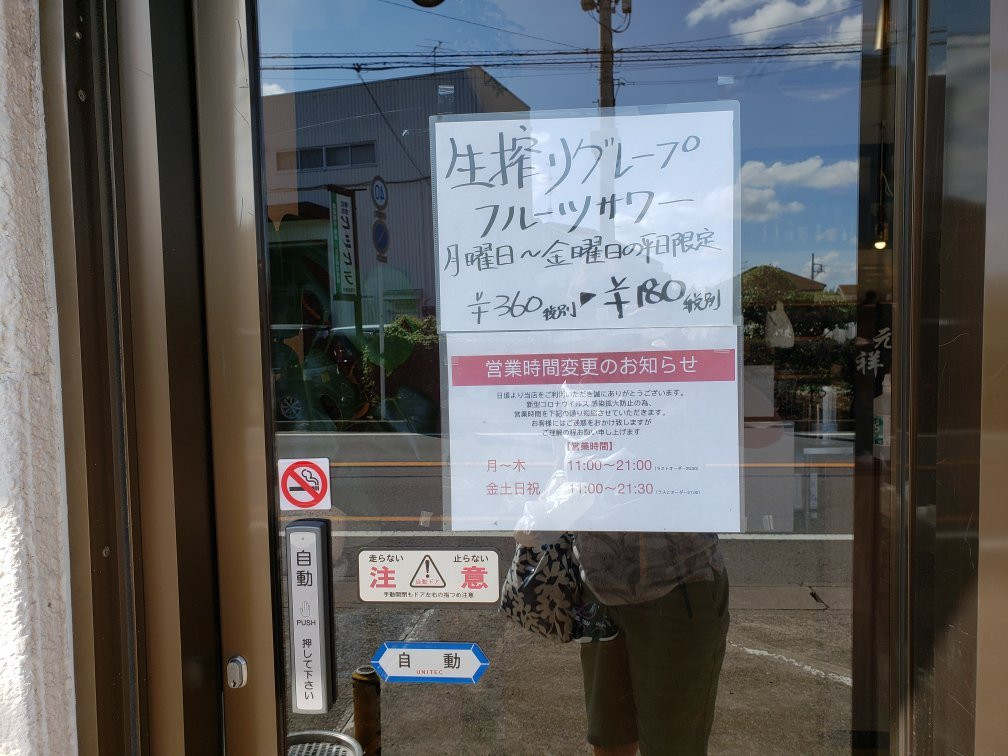 生搾りグレープ
フルーツサワー
月曜日～金曜日の平日限定
¥360税別 ▶ ¥180税別
営業時間変更のお知らせ
日頃より当店をご利用いただき誠にありがとうございます。
新型コロナウイルス感染拡大防止の為、
営業時間を下記の通り短縮させていただきます。
お客様にはご迷惑をおかけ致しますが
ご理解の程お願い申し上げます
【営業時間】
月～木 11:00～21:00
金土日祝 11:00～21:30
元祥
自動
PUSH
押して下さい
走らない 止らない
注 意
自動ドア
手動開閉もドア左右の指つめ注意
自 動
UNITEC